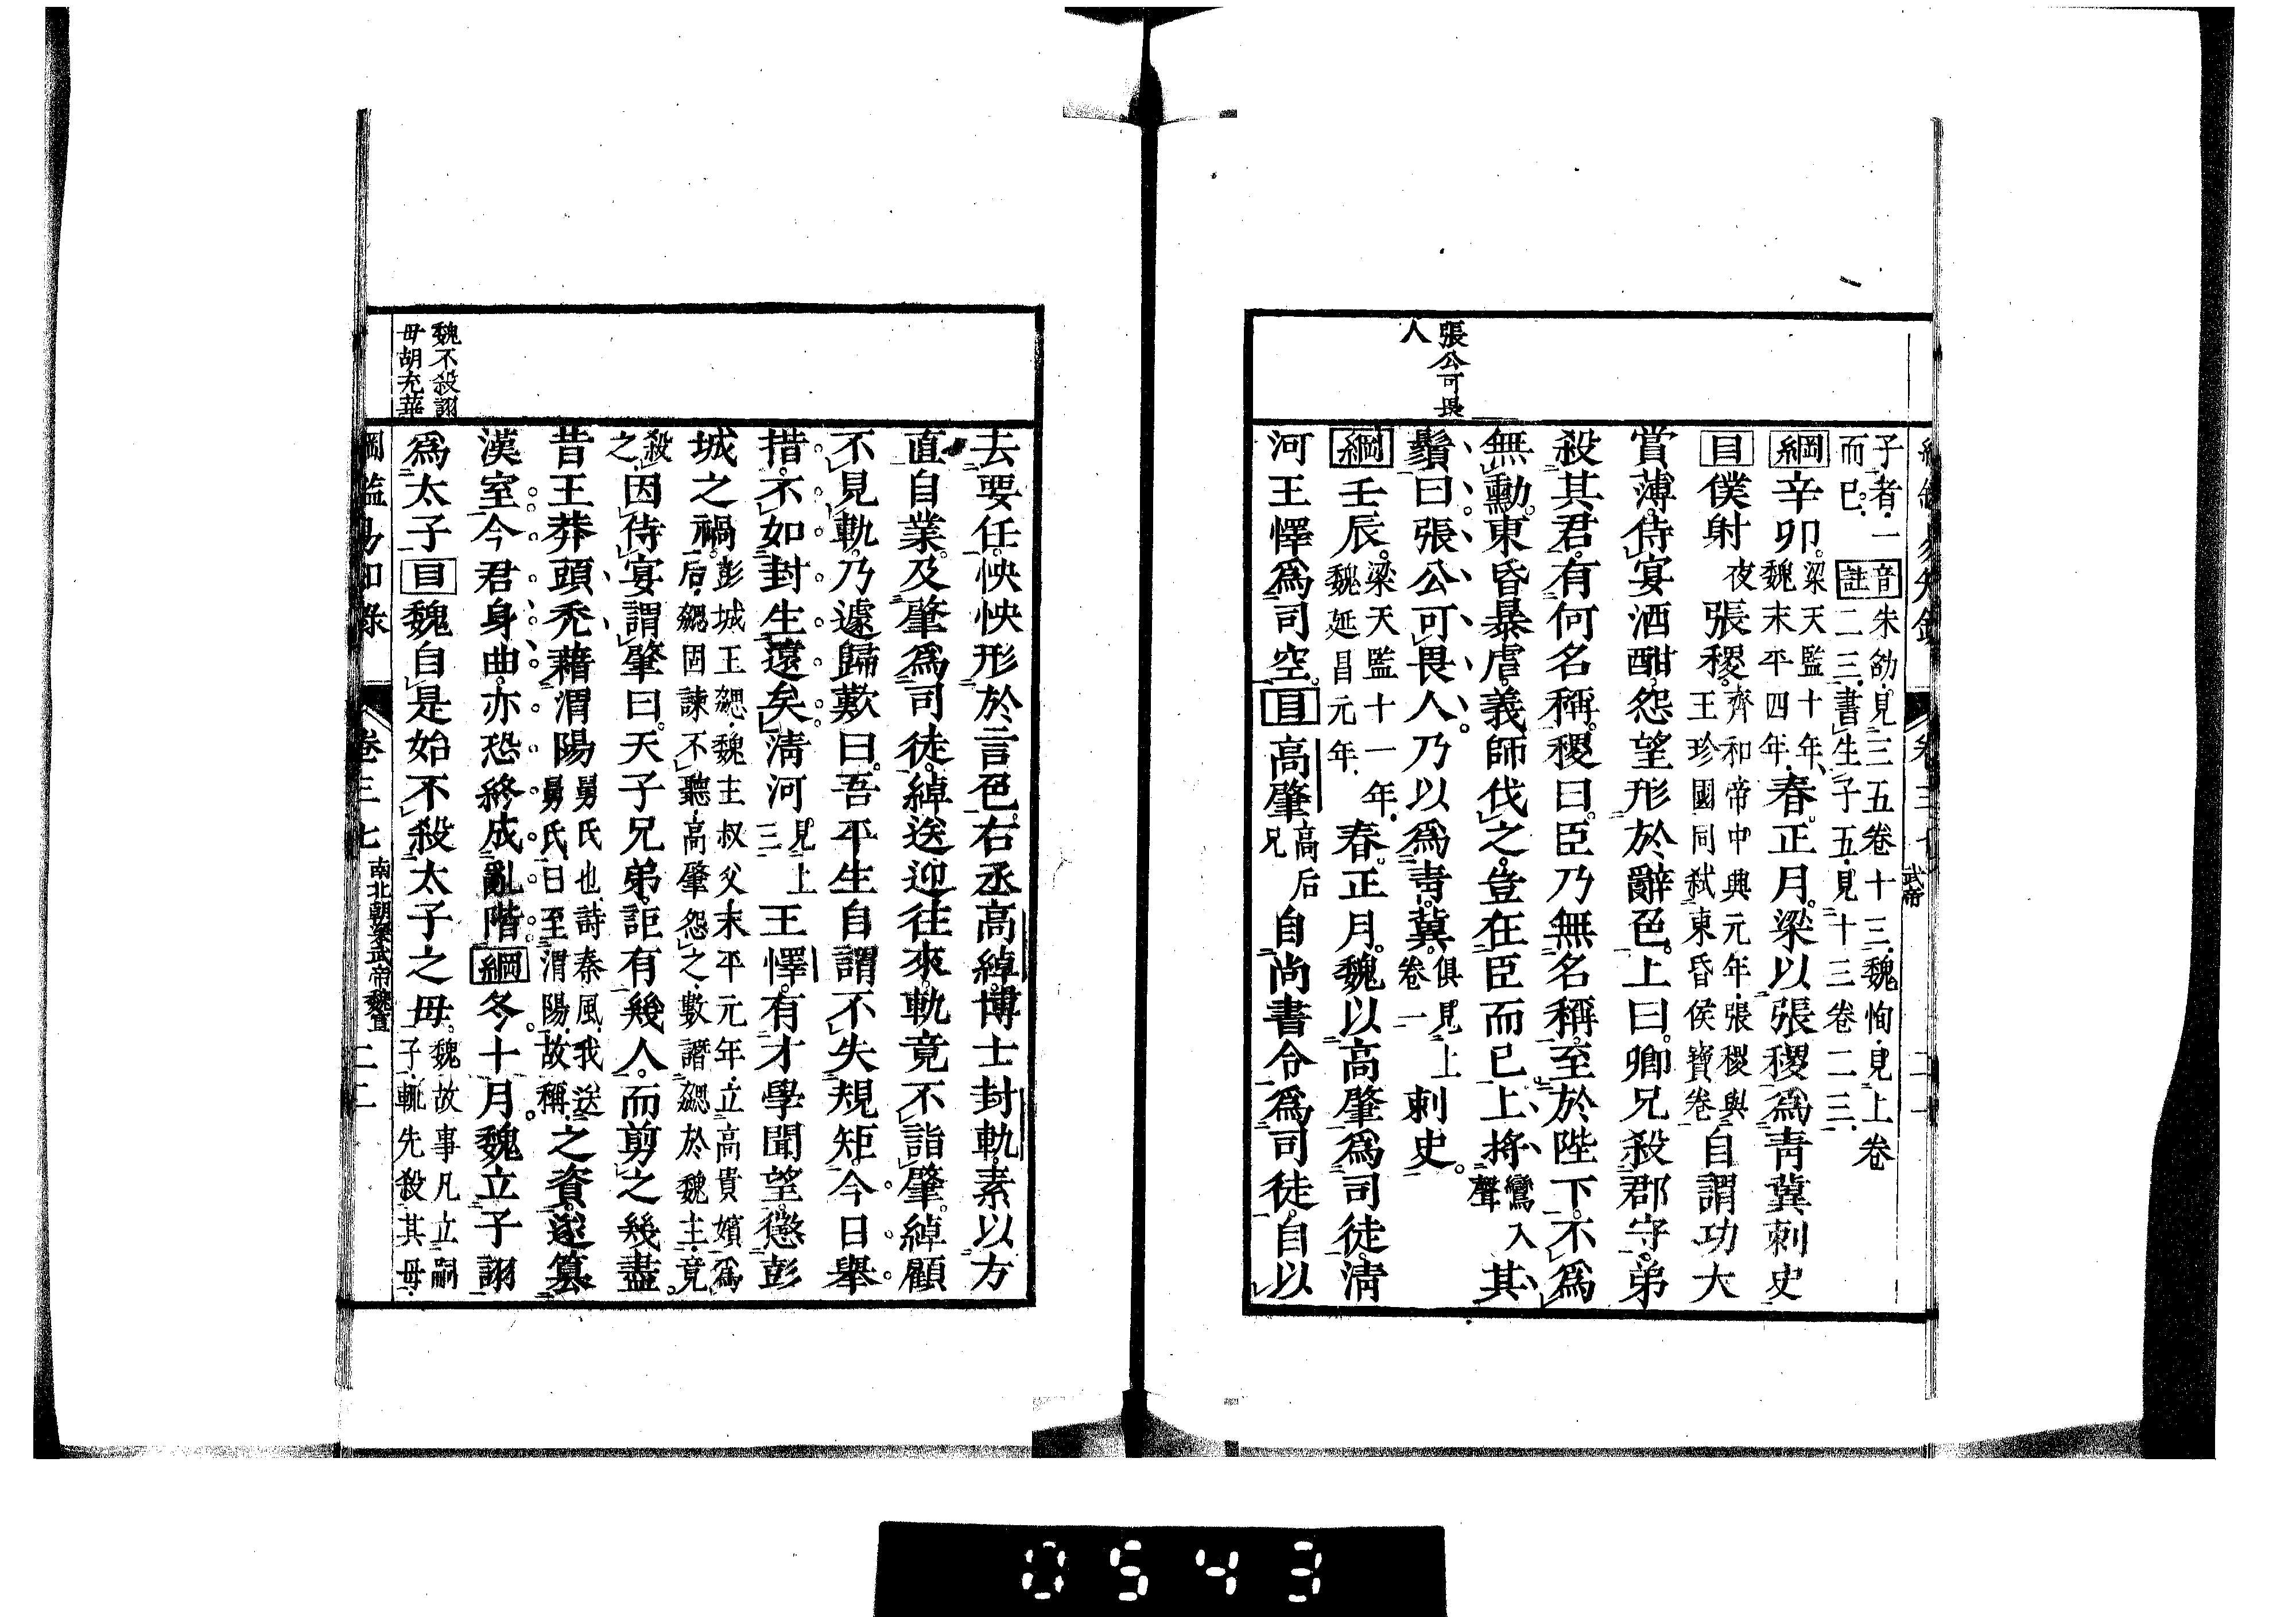 張公可畏
人
子者一
而已
音註
朱劭見三五卷十三魏恂見上卷
二三書生子五見十三卷二三
綱辛卯
梁天監十年
魏末平四年
春正月梁以張稷爲青冀刺史
目僕射
夜
張稷
齊和帝中興元年張稷與
王珍國同弑東昏侯寶卷
自謂功大
賞薄侍宴酒酣怨望形於辭色上曰卿兄殺郡守弟
殺其君有何名稱稷曰臣乃無名稱至於陛下不爲
無勳東昏暴虐義師伐之豈在臣而已上捋
鸞入
聲
其
鬚曰張公可畏人乃以爲青冀
俱見上
卷一
刺史
綱壬辰
梁天監十一年
魏延昌元年
春正月魏以高肇爲司徒淸
河王懌爲司空目高肇
高后
兄
自尚書令爲司徒自以
去要任怏怏形於言色右丞高綽博士封軌素以方
直自業及肇爲司徒綽送迎往來軌竟不詣肇綽顧
不見軌乃遽歸歎曰吾平生自謂不失規矩今日舉
措不如封生遠矣淸河
見上
三
王懌有才學聞望懲彭
城之禍
彭城王勰魏主叔父末平元年立高貴嬪爲
后勰固諫不聽高肇怨之數譖勰於魏主竟
殺
之
因侍宴謂肇曰天子兄弟詎有幾人而剪之幾盡
昔王莽頭禿藉渭陽
舅氏也詩秦風我送
舅氏曰至渭陽故稱
之資遂簒
漢室今君身曲亦恐終成亂階綱冬十月魏立子詡
爲太子目魏自是始不殺太子之母
魏故事凡立嗣
子輒先殺其母
魏不殺詡
母胡充華
綱鑑易知錄 卷三七 南北朝梁武帝魏宣 二二
0543